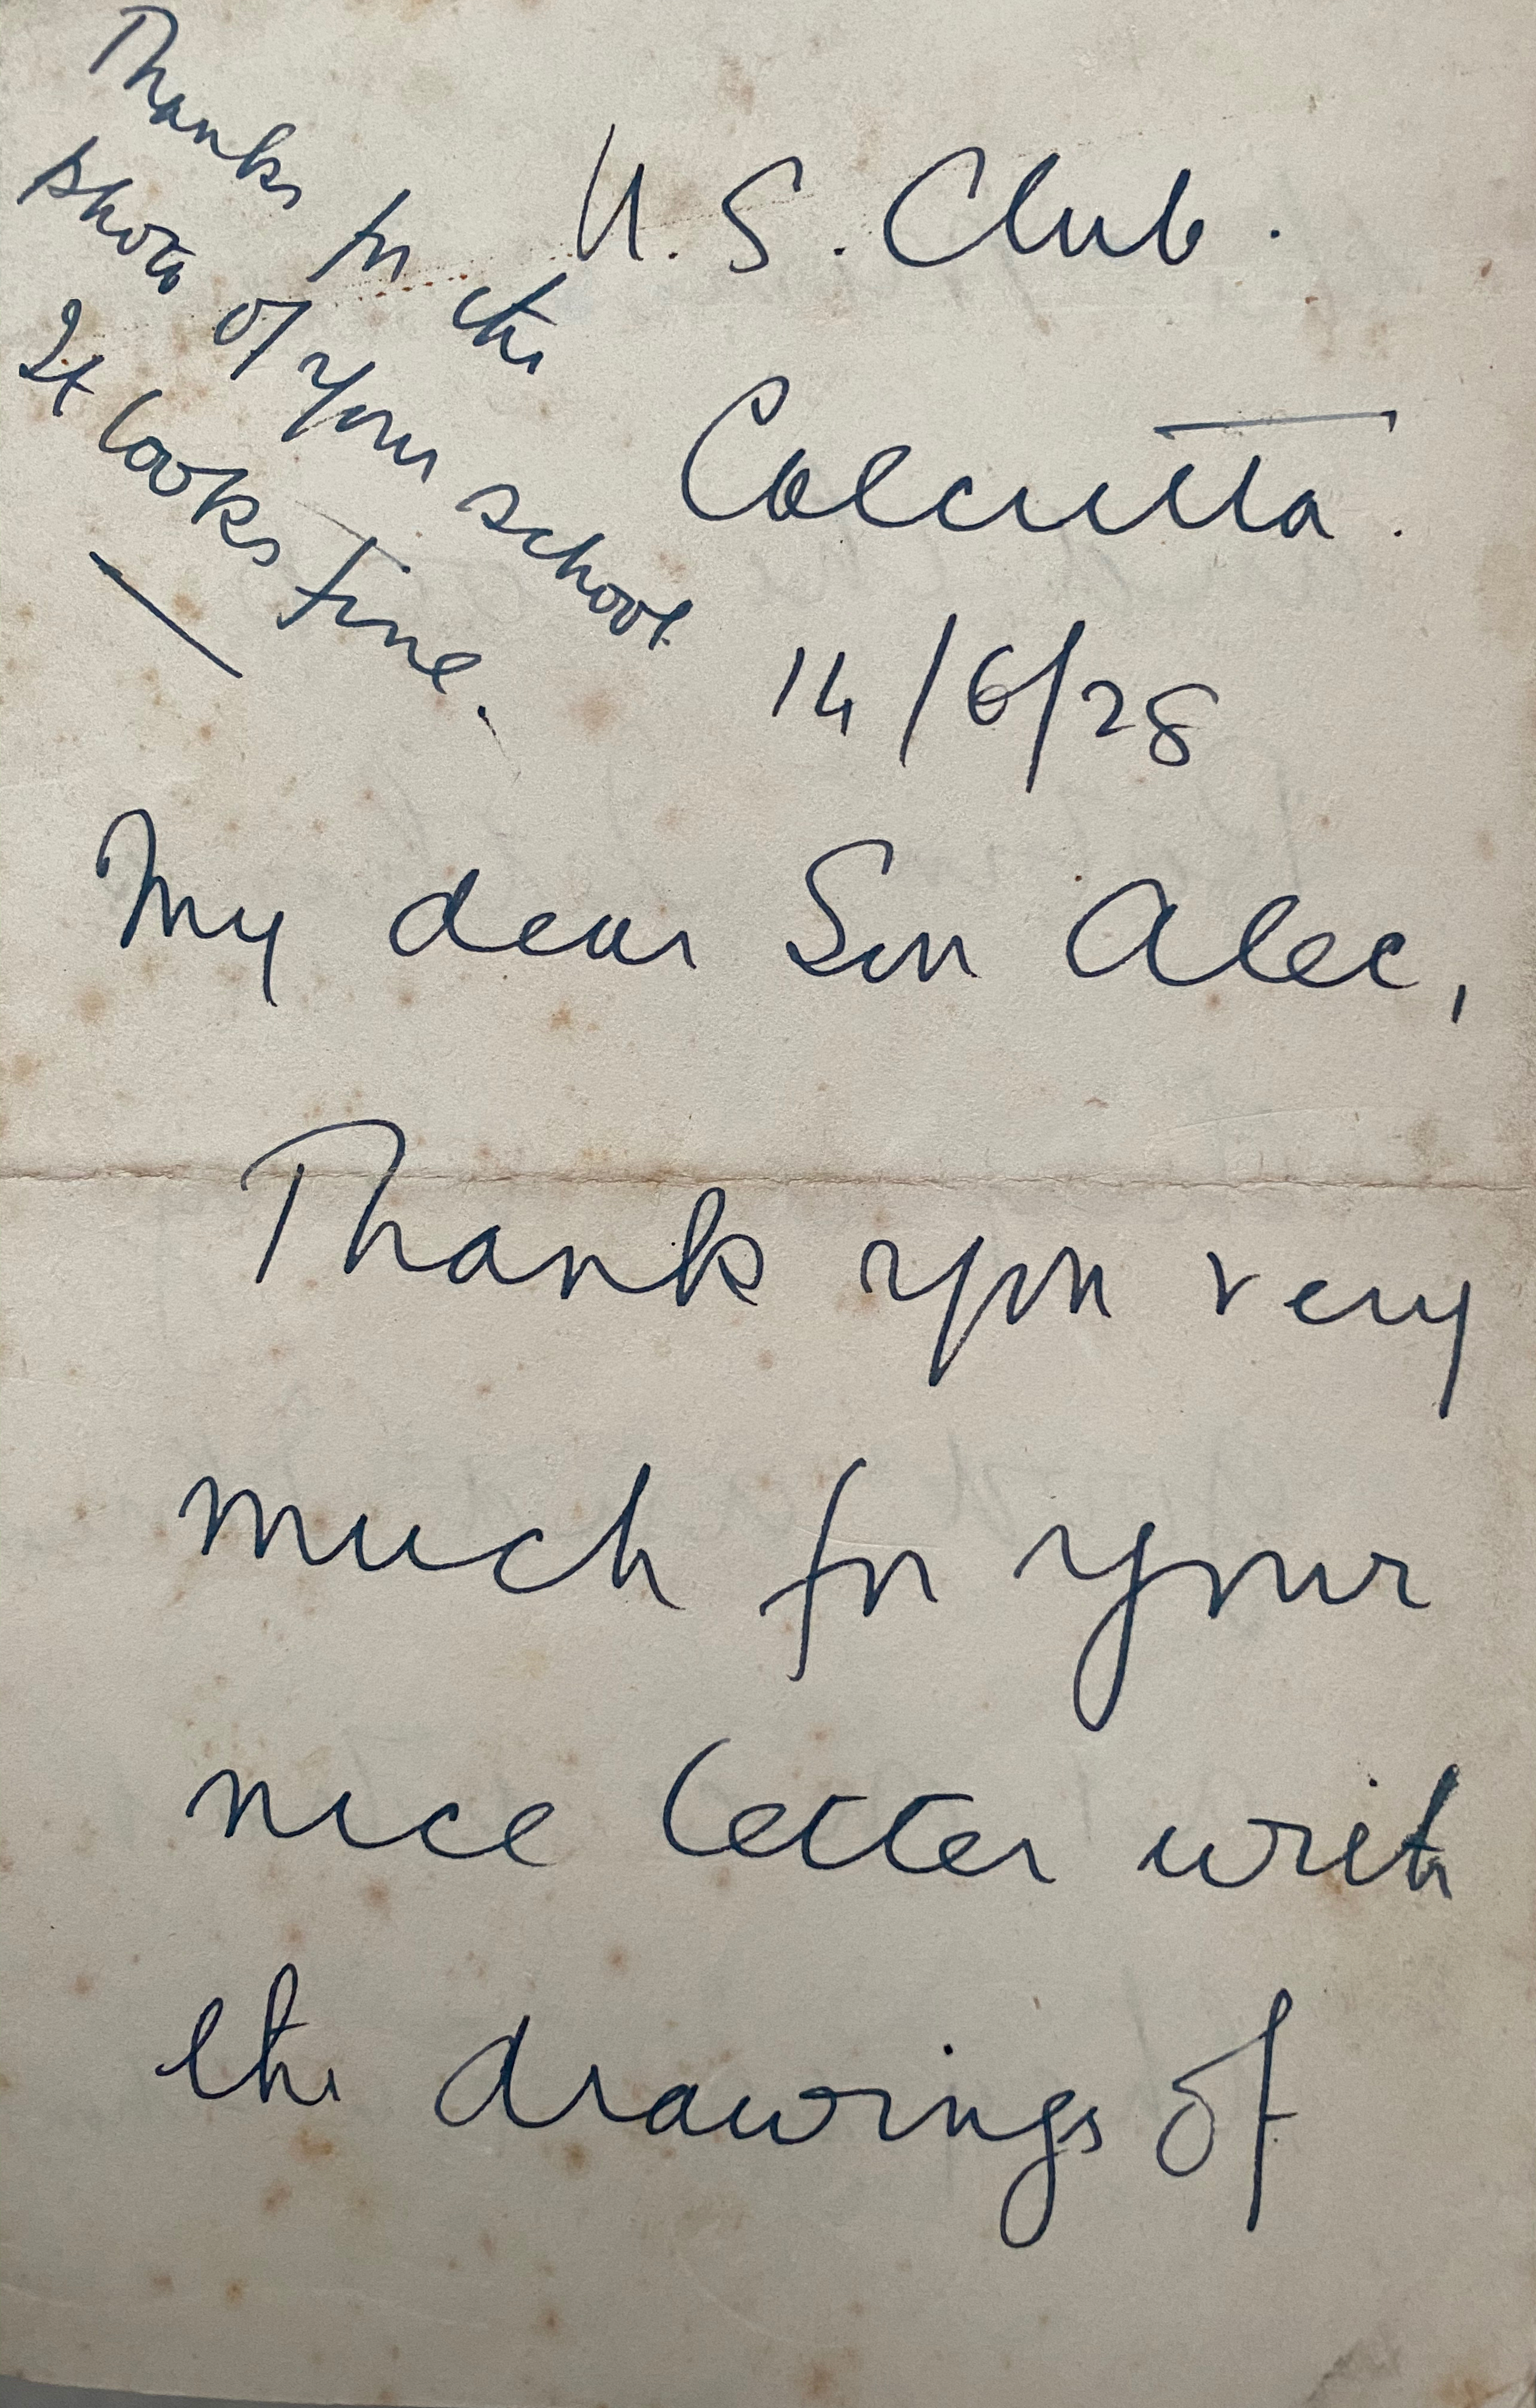 Thanks for the
photo of your school
It looks fine.
U.S. Club.
Calcutta.
14/6/28
My dear Son Alec,
Thank you very
much for your
nice letter with
the drawings of